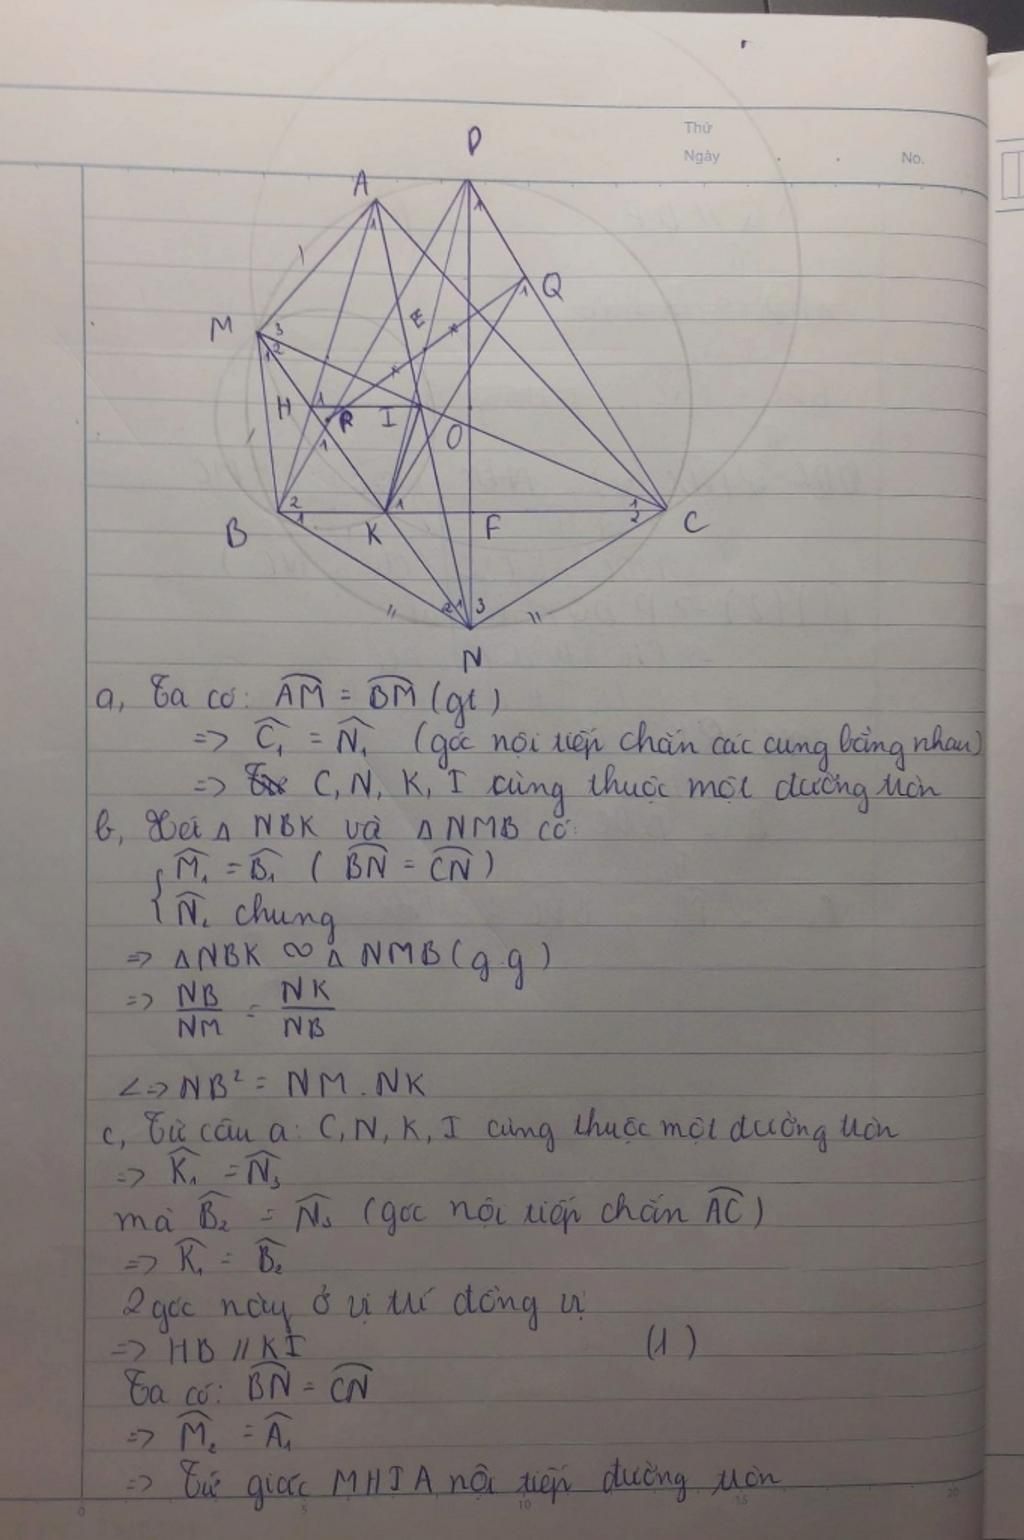 Thứ
Ngày . . No.
P
A
1
1
Q
1
M
3
1 2
E
H
1
R
1
I
O
B
2
1
K
1
F
1
2
C
2 1 3
N
a, Ta có: AM = BM (gt)
=> Ĉ₁ = N̂₁ (góc nội tiếp chắn các cung bằng nhau)
=> C, N, K, I cùng thuộc một đường tròn
b, Xét Δ NBK và Δ NMB có:
{ M̂₁ = B̂₁ ( BN = CN )
N̂₂ chung
=> Δ NBK ∽ Δ NMB (g.g)
=> NB/NM = NK/NB
<=> NB² = NM . NK
c, Từ câu a: C, N, K, I cùng thuộc một đường tròn
=> K̂₁ = N̂₃
mà B̂₂ = N̂₃ (góc nội tiếp chắn AC)
=> K̂₁ = B̂₂
2 góc này ở vị trí đồng vị
=> HB // KI (1)
Ta có: BN = CN
=> M̂₂ = Â₁
=> Tứ giác MHIA nội tiếp đường tròn
0 5 10 15 20